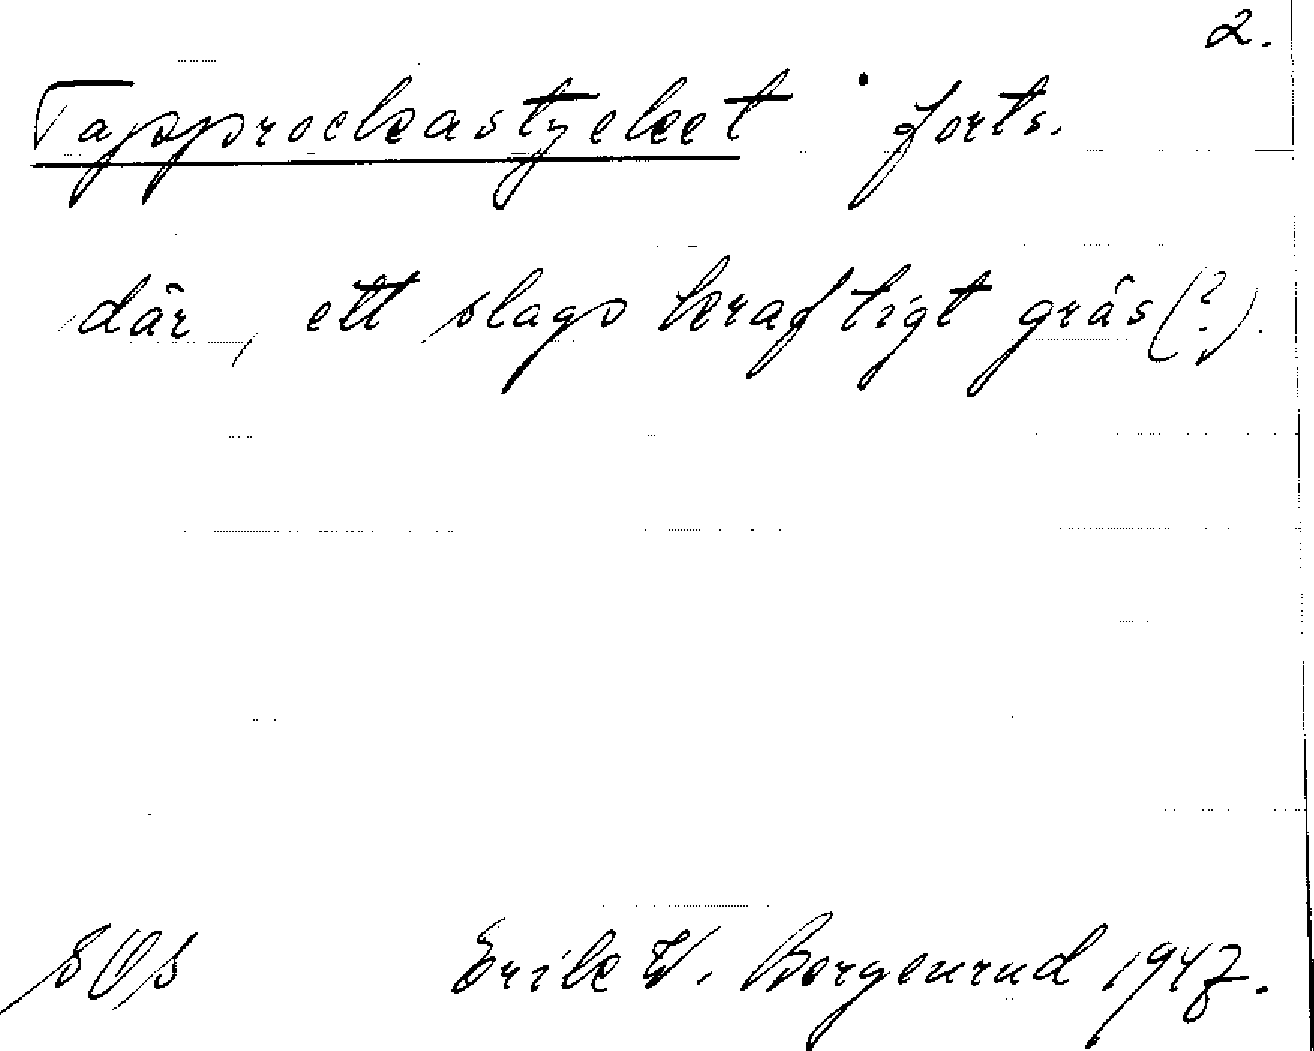 2.
Tapprockastycket forts.
där, ett slags kraftigt gräs (?).
Erik W. Bergenrud 1947.